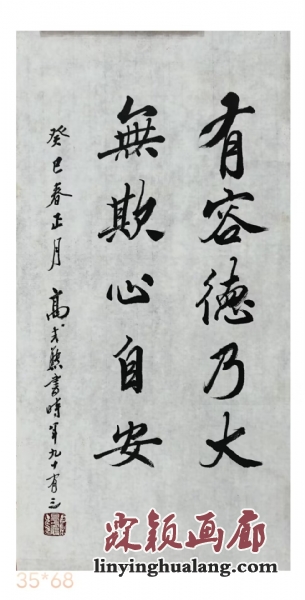 有容德乃大
無欺心自安
癸巳春正月 高式熊書時年九十有三
霖颖画廊
linyinghualang.com
35*68